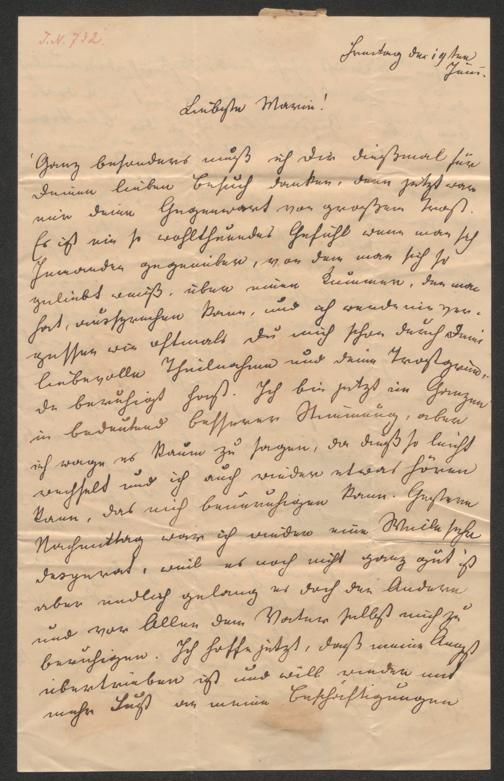 I.N. 732
Freitag den 19ten
Juni.
Liebste Marie!
Ganz besonders muß ich Dir dießmal für
Deinen lieben Besuch danken, denn jetzt war
mir Deine Gegenwart von großem Trost.
Es ist ein so wohlthuendes Gefühl wenn man sich
Jemanden gegenüber, von dem man sich so
geliebt weiß, über einen Kummer, den man
hat, aussprechen kann, und ich werde nie ver-
gessen wie oftmals Du mich schon durch Deine
liebevolle Theilnahme und Deine Trostgrün-
de beruhigt hast. Ich bin jetzt im Ganzen
in bedeutend besserer Stimmung, aber
ich wage es kaum zu sagen, da dieß so leicht
wechselt und ich auch wieder etwas hören
kann, das mich beunruhigen kann. Gestern
Nachmittag war ich wieder eine Weile sehr
desperat, weil es noch nicht ganz gut ist
aber endlich gelang es doch den Andern
und vor Allen dem Vater selbst mich zu
beruhigen. Ich hoffe jetzt, daß meine Angst
übertrieben ist und will wieder mit
mehr Lust an meine Beschäftigungen